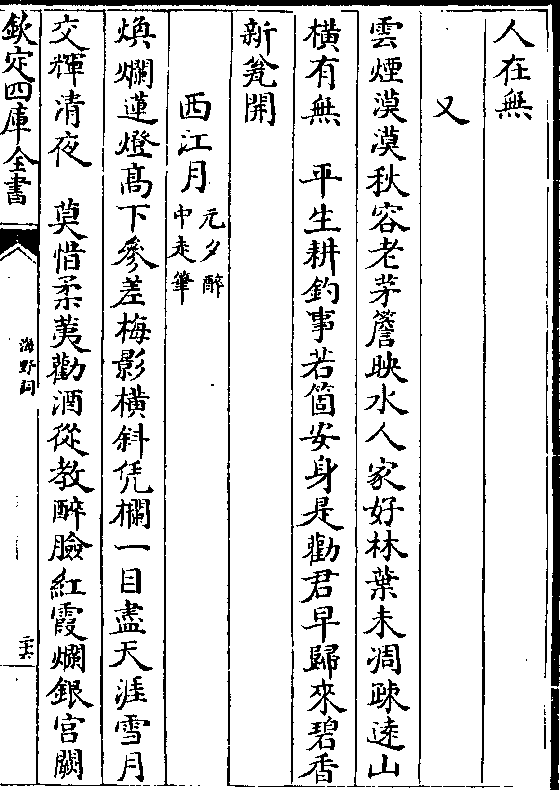 人在無
又
雲煙漠漠秋容老茅簷映水人家好林葉未凋疎逺山
横有無　平生耕釣事若箇安身是勸君早歸來碧香
新篘開
西江月元夕醉中走筆
煥爛蓮燈髙下參差梅影横斜凭欄一目盡天涯雪月
交輝清夜　莫惜柔荑勸酒從教醉臉紅霞爛銀宫闕
欽定四庫全書
海野詞